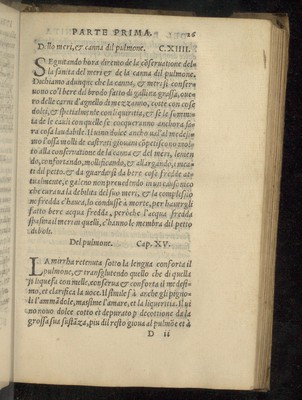 PARTE PRIMA. 26
Dello meri, & canna dil pulmone. C. XIIII.
SEguitando hora dicemo de la cõseruatione del-
la sanita del meri & de la canna dil pulmone.
Diciamo adunque che la canna, & meri se conser-
uono co'l bere dil brodo fatto di gallina grossa, oue-
ro delle carne d'agnello di mezzano, cotte con cose
dolci, & spetialmente con liquiritia, & se le summa-
de le cauli con quelle se coceranno anchora sa-
ra cosa laudabile. Il uino dolce ancho ual'al medesi-
mo l'ossa molli de castrati giouani
alla conseruatione de la canna & del meri, lenien
do, confortando, mollificando, & allargando, i mea-
ti del petto, & da guardarsi da bere cose fredde at-
tualmente, e galeno non preuedendo in un canonico
che curaua la debilita del suo meri, & la complessio-
ne fredda c'haueа, lo condusse a morte, per hauergli
fatto bere acqua fredda, perõche l'acqua fredda
piu in il meri in quelli, c'hanno le membra dil petto
deboli.
Del pulmone. Cap. XV.
LA mirrha retenuta sotto la lengua conforta il
pulmone, & transglutendo quello che di quella
si liquefa con melle, conserua & conforta il medesi-
mo, et clarifica la uoce. Il simile fa anche gli pigno-
li l'ammãdole, massime l'amare, et la liqueritia. Il ui
no nouo dolce cotto et depurato p decottione da la
grossa sua sustãza, piu dil resto gioua al pulmõe et a
D ii